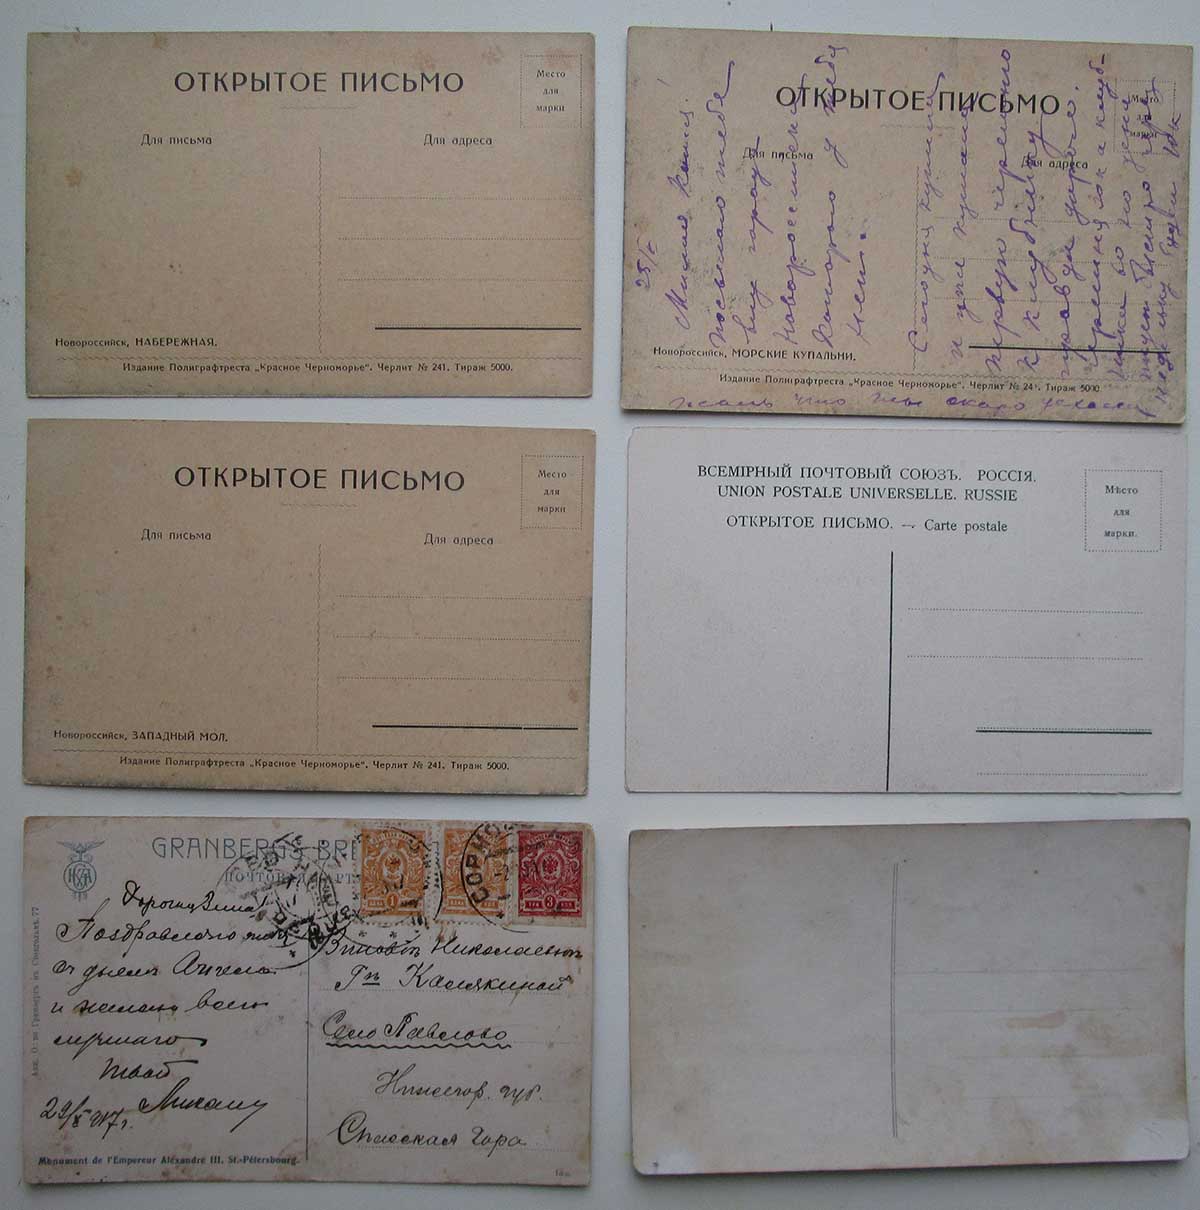 ОТКРЫТОЕ ПИСЬМО
Место
для
марки
Для письма
Для адреса
Новороссийск, НАБЕРЕЖНАЯ.
Издание Полиграфтреста „Красное Черноморье“. Черлит № 241. Тираж 5000.
ОТКРЫТОЕ ПИСЬМО
Место
для
марки
Для письма
Для адреса
25/
Милая Катя!
Посылаю тебе
вид города
Новороссийска
которого у тебя
нет.
Сегодня купила
и уже кушала
первую черешню
и клубнику
правда дорого.
жаль что ты скоро
Новороссийск, МОРСКИЕ КУПАЛЬНИ.
Издание Полиграфтреста „Красное Черноморье“. Черлит № 241. Тираж 5000.
ОТКРЫТОЕ ПИСЬМО
Место
для
марки
Для письма
Для адреса
Новороссийск, ЗАПАДНЫЙ МОЛ.
Издание Полиграфтреста „Красное Черноморье“. Черлит № 241. Тираж 5000.
ВСЕМІРНЫЙ ПОЧТОВЫЙ СОЮЗЪ. РОССІЯ.
UNION POSTALE UNIVERSELLE. RUSSIE
ОТКРЫТОЕ ПИСЬМО. — Carte postale
Мѣсто
для
марки.
GRANBERGS
ПОЧТОВАЯ КАРТ
1
3
СОРМО
Дорогая Зина!
Поздравляю
с днем Ангела
и желаю всего
лучшаго
твой
29/X 917 г.
Николаевне
Гпѣ Калякиной
Село Павлово
Нижегор. губ.
Спасская Гора
Акц. О-во Гранбергъ въ Стокгольмѣ. 77
Monument de l'Empereur Aléxandre III. St.-Pétersbourg.